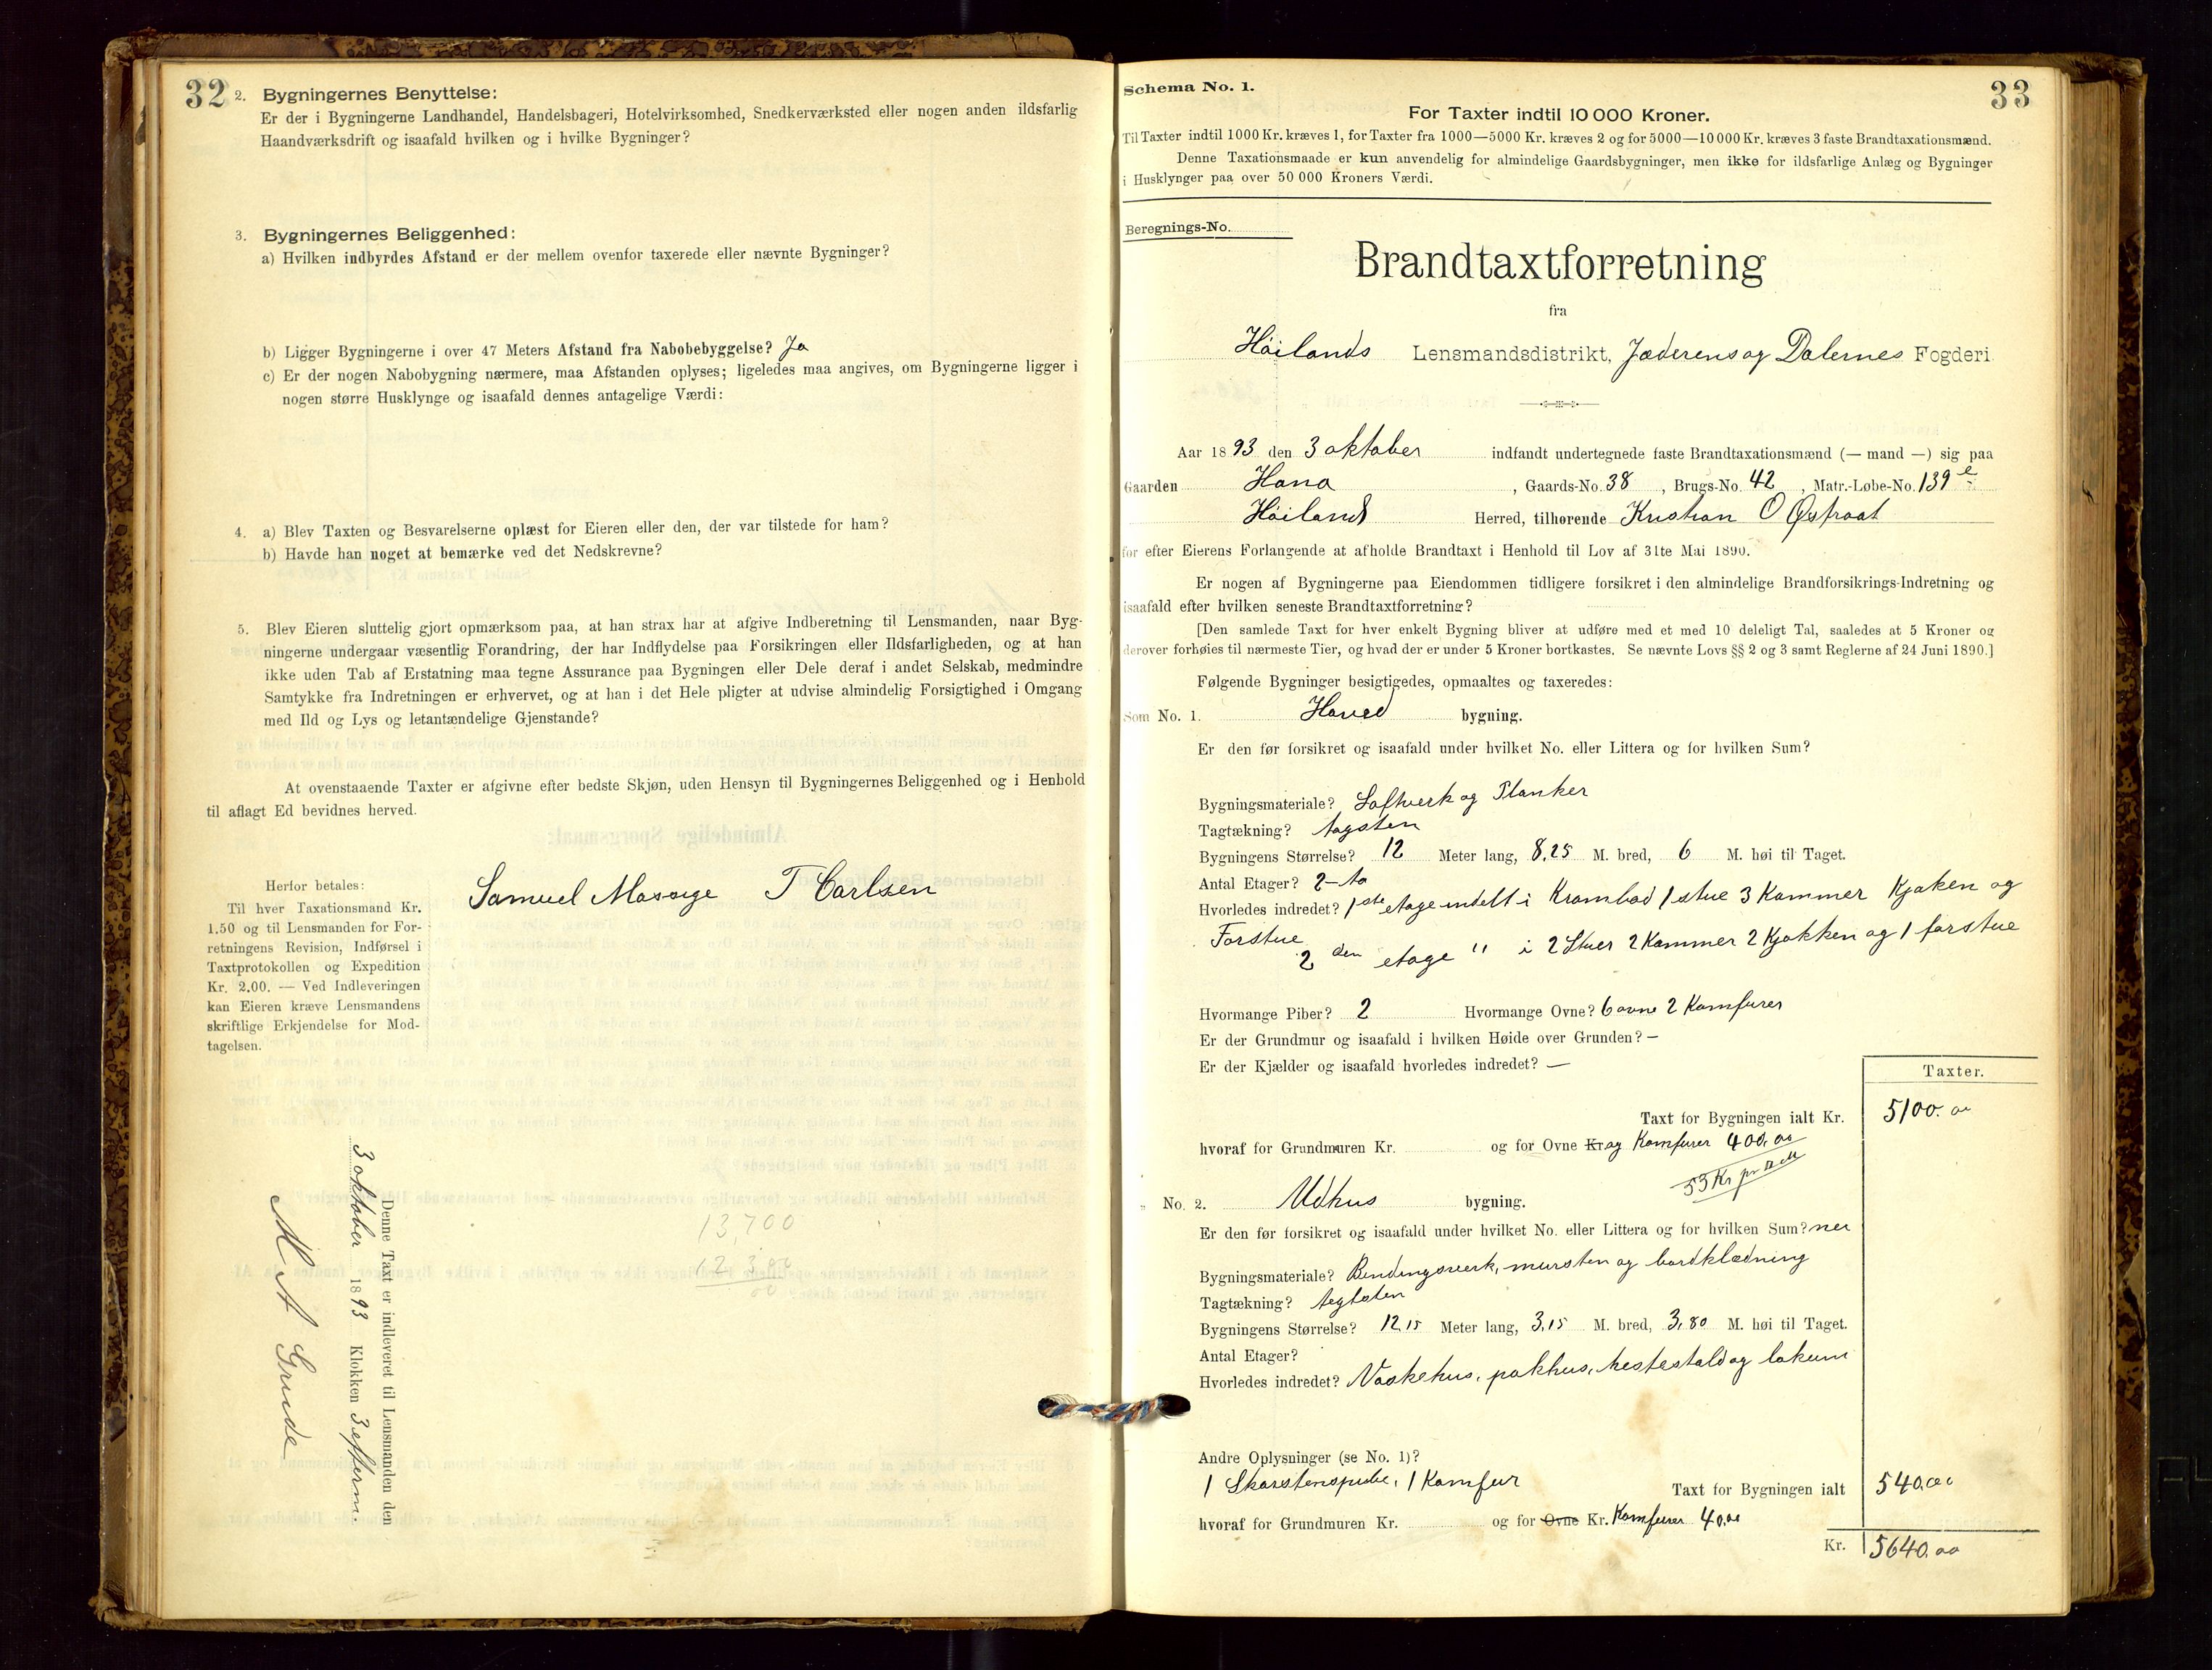 32
2. Bygningernes Benyttelse:
Er der i Bygningerne Landhandel, Handelsbageri, Hotelvirksomhed, Snedkerværksted eller nogen anden ildsfarlig
Haandværksdrift og isaafald hvilken og i hvilke Bygninger?
3. Bygningernes Beliggenhed:
a) Hvilken indbyrdes Afstand er der mellem ovenfor taxerede eller nævnte Bygninger?
b) Ligger Bygningerne i over 47 Meters Afstand fra Nabobebyggelse? Ja
c) Er der nogen Nabobygning nærmere, maa Afstanden oplyses; ligeledes maa angives, om Bygningerne ligger i
nogen større Husklynge og isaafald dennes antagelige Værdi:
4. a) Blev Taxten og Besvarelserne oplæst for Eieren eller den, der var tilstede for ham?
b) Havde han noget at bemærke ved det Nedskrevne?
5. Blev Eieren sluttelig gjort opmærksom paa, at han strax har at afgive Indberetning til Lensmanden, naar Byg-
ningerne undergaar væsentlig Forandring, der har Indflydelse paa Forsikringen eller Ildsfarligheden, og at han
ikke uden Tab af Erstatning maa tegne Assurance paa Bygningen eller Dele deraf i andet Selskab, medmindre
Samtykke fra Indretningen er erhvervet, og at han i det Hele pligter at udvise almindelig Forsigtighed i Omgang
med Ild og Lys og letantændelige Gjenstande?
At ovenstaaende Taxter er afgivne efter bedste Skjøn, uden Hensyn til Bygningernes Beliggenhed og i Henhold
til aflagt Ed bevidnes herved.
Samuel T Carlsen
Herfor betales:
Til hver Taxationsmand Kr.
1.50 og til Lensmanden for For-
retningens Revision, Indførsel i
Taxtprotokollen og Expedition
Kr. 2.00. — Ved Indleveringen
kan Eieren kræve Lensmandens
skriftlige Erkjendelse for Mod-
tagelsen.
Denne Taxt er indleveret til Lensmanden den
3 oktober 1893 Klokken 3 efterm.
M A Grude
13,700
33
Schema No. 1.
For Taxter indtil 10 000 Kroner.
Til Taxter indtil 1000 Kr. kræves 1, for Taxter fra 1000—5000 Kr. kræves 2 og for 5000—10 000 Kr. kræves 3 faste Brandtaxationsmænd.
Denne Taxationsmaade er kun anvendelig for almindelige Gaardsbygninger, men ikke for ildsfarlige Anlæg og Bygninger
i Husklynger paa over 50 000 Kroners Værdi.
Beregnings-No.
Brandtaxtforretning
fra
Höilands Lensmandsdistrikt, Jæderens og Dalernes Fogderi
Aar 1893 den 3 oktober indfandt undertegnede faste Brandtaxationsmænd (— mand —) sig paa
Gaarden Hana, Gaards-No. 38, Brugs-No. 42, Matr.-Løbe-No. 139 e
Höiland Herred, tilhørende Kristian O Østraat
for efter Eierens Forlangende at afholde Brandtaxt i Henhold til Lov af 31te Mai 1890.
Er nogen af Bygningerne paa Eiendommen tidligere forsikret i den almindelige Brandforsikrings-Indretning og
isaafald efter hvilken seneste Brandtaxtforretning?
[Den samlede Taxt for hver enkelt Bygning bliver at udføre med et med 10 deleligt Tal, saaledes at 5 Kroner og
derover forhøies til nærmeste Tier, og hvad der er under 5 Kroner bortkastes. Se nævnte Lovs §§ 2 og 3 samt Reglerne af 24 Juni 1890.]
Følgende Bygninger besigtigedes, opmaaltes og taxeredes:
Som No. 1. Hoved bygning.
Er den før forsikret og isaafald under hvilket No. eller Littera og for hvilken Sum?
Bygningsmateriale? Laftverk og Planker
Tagtækning? tagsten
Bygningens Størrelse? 12 Meter lang, 8,25 M. bred, 6 M. høi til Taget.
Antal Etager? 2-to
Hvorledes indredet? 1ste etage indelt i Krambod 1 stue 3 Kammer Kjøken og
Forstue
2den etage " i 2 Stuer 2 Kammer 2 Kjøkken og 1 forstue
Hvormange Piber? 2 Hvormange Ovne? 6 ovne 2 Komfurer
Er der Grundmur og isaafald i hvilken Høide over Grunden? —
Er der Kjælder og isaafald hvorledes indredet? —
Taxter.
Taxt for Bygningen ialt Kr. 5100.00
hvoraf for Grundmuren Kr. og for Ovne Kr og Komfurer 400,00
53 Kr pr
" No. 2. Udhus bygning.
Er den før forsikret og isaafald under hvilket No. eller Littera og for hvilken Sum? nei
Bygningsmateriale? Bindingsverk, mursten og bordklædning
Tagtækning? teglsten
Bygningens Størrelse? 12,15 Meter lang, 3,15 M. bred, 3,80 M. høi til Taget.
Antal Etager?
Hvorledes indredet? Vaskehus, pakhus, hestestald og lokum
Andre Oplysninger (se No. 1)?
1 Skorstenspibe, 1 Komfur Taxt for Bygningen ialt 540,00
hvoraf for Grundmuren Kr. og for Ovne Kr. Komfurer 40,00
Kr. 5640,00